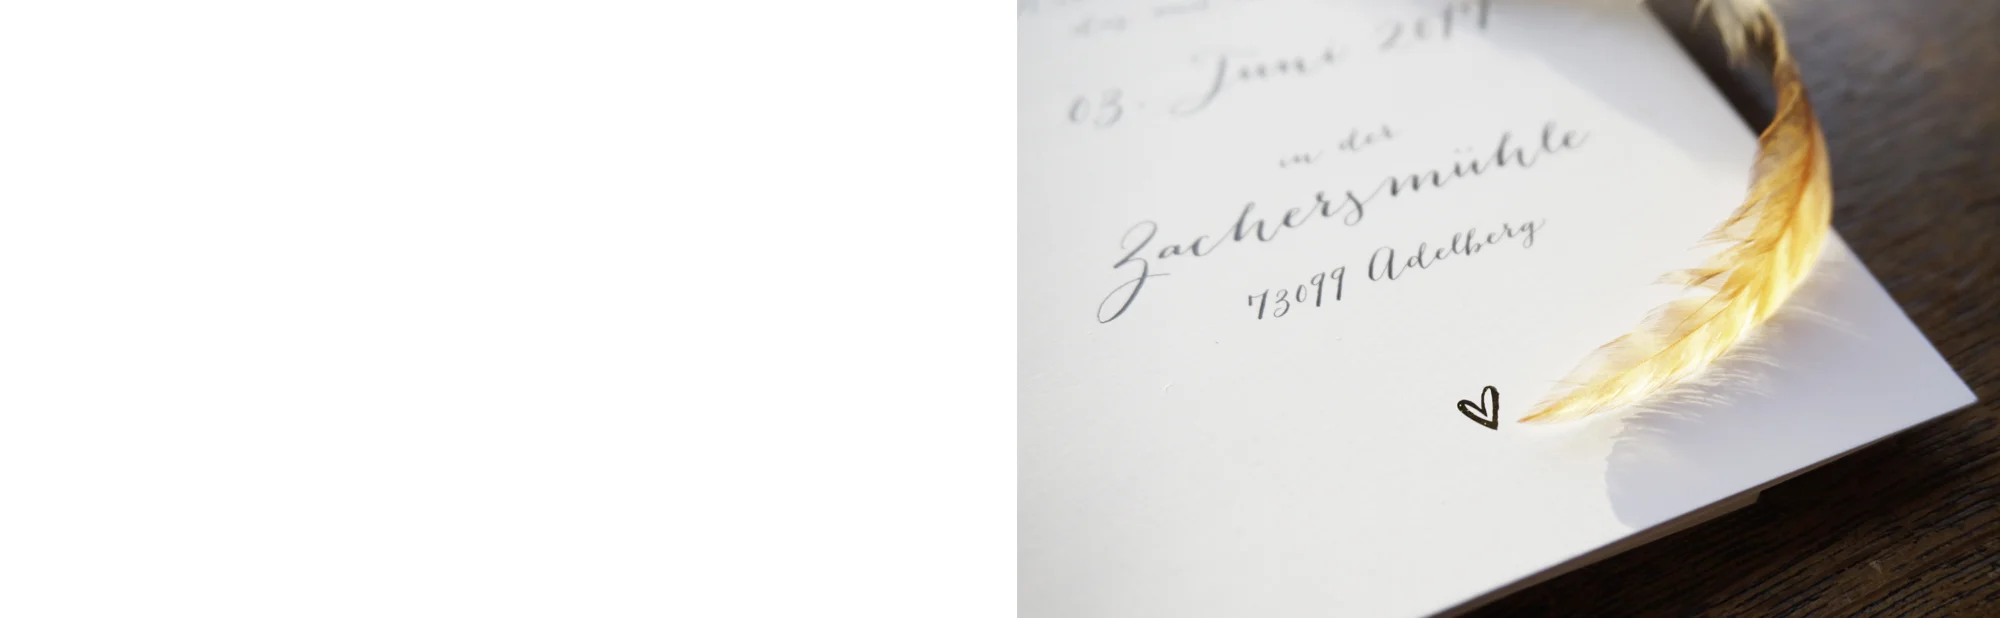 03. Juni 2017
in der
Zachersmühle
73099 Adelberg